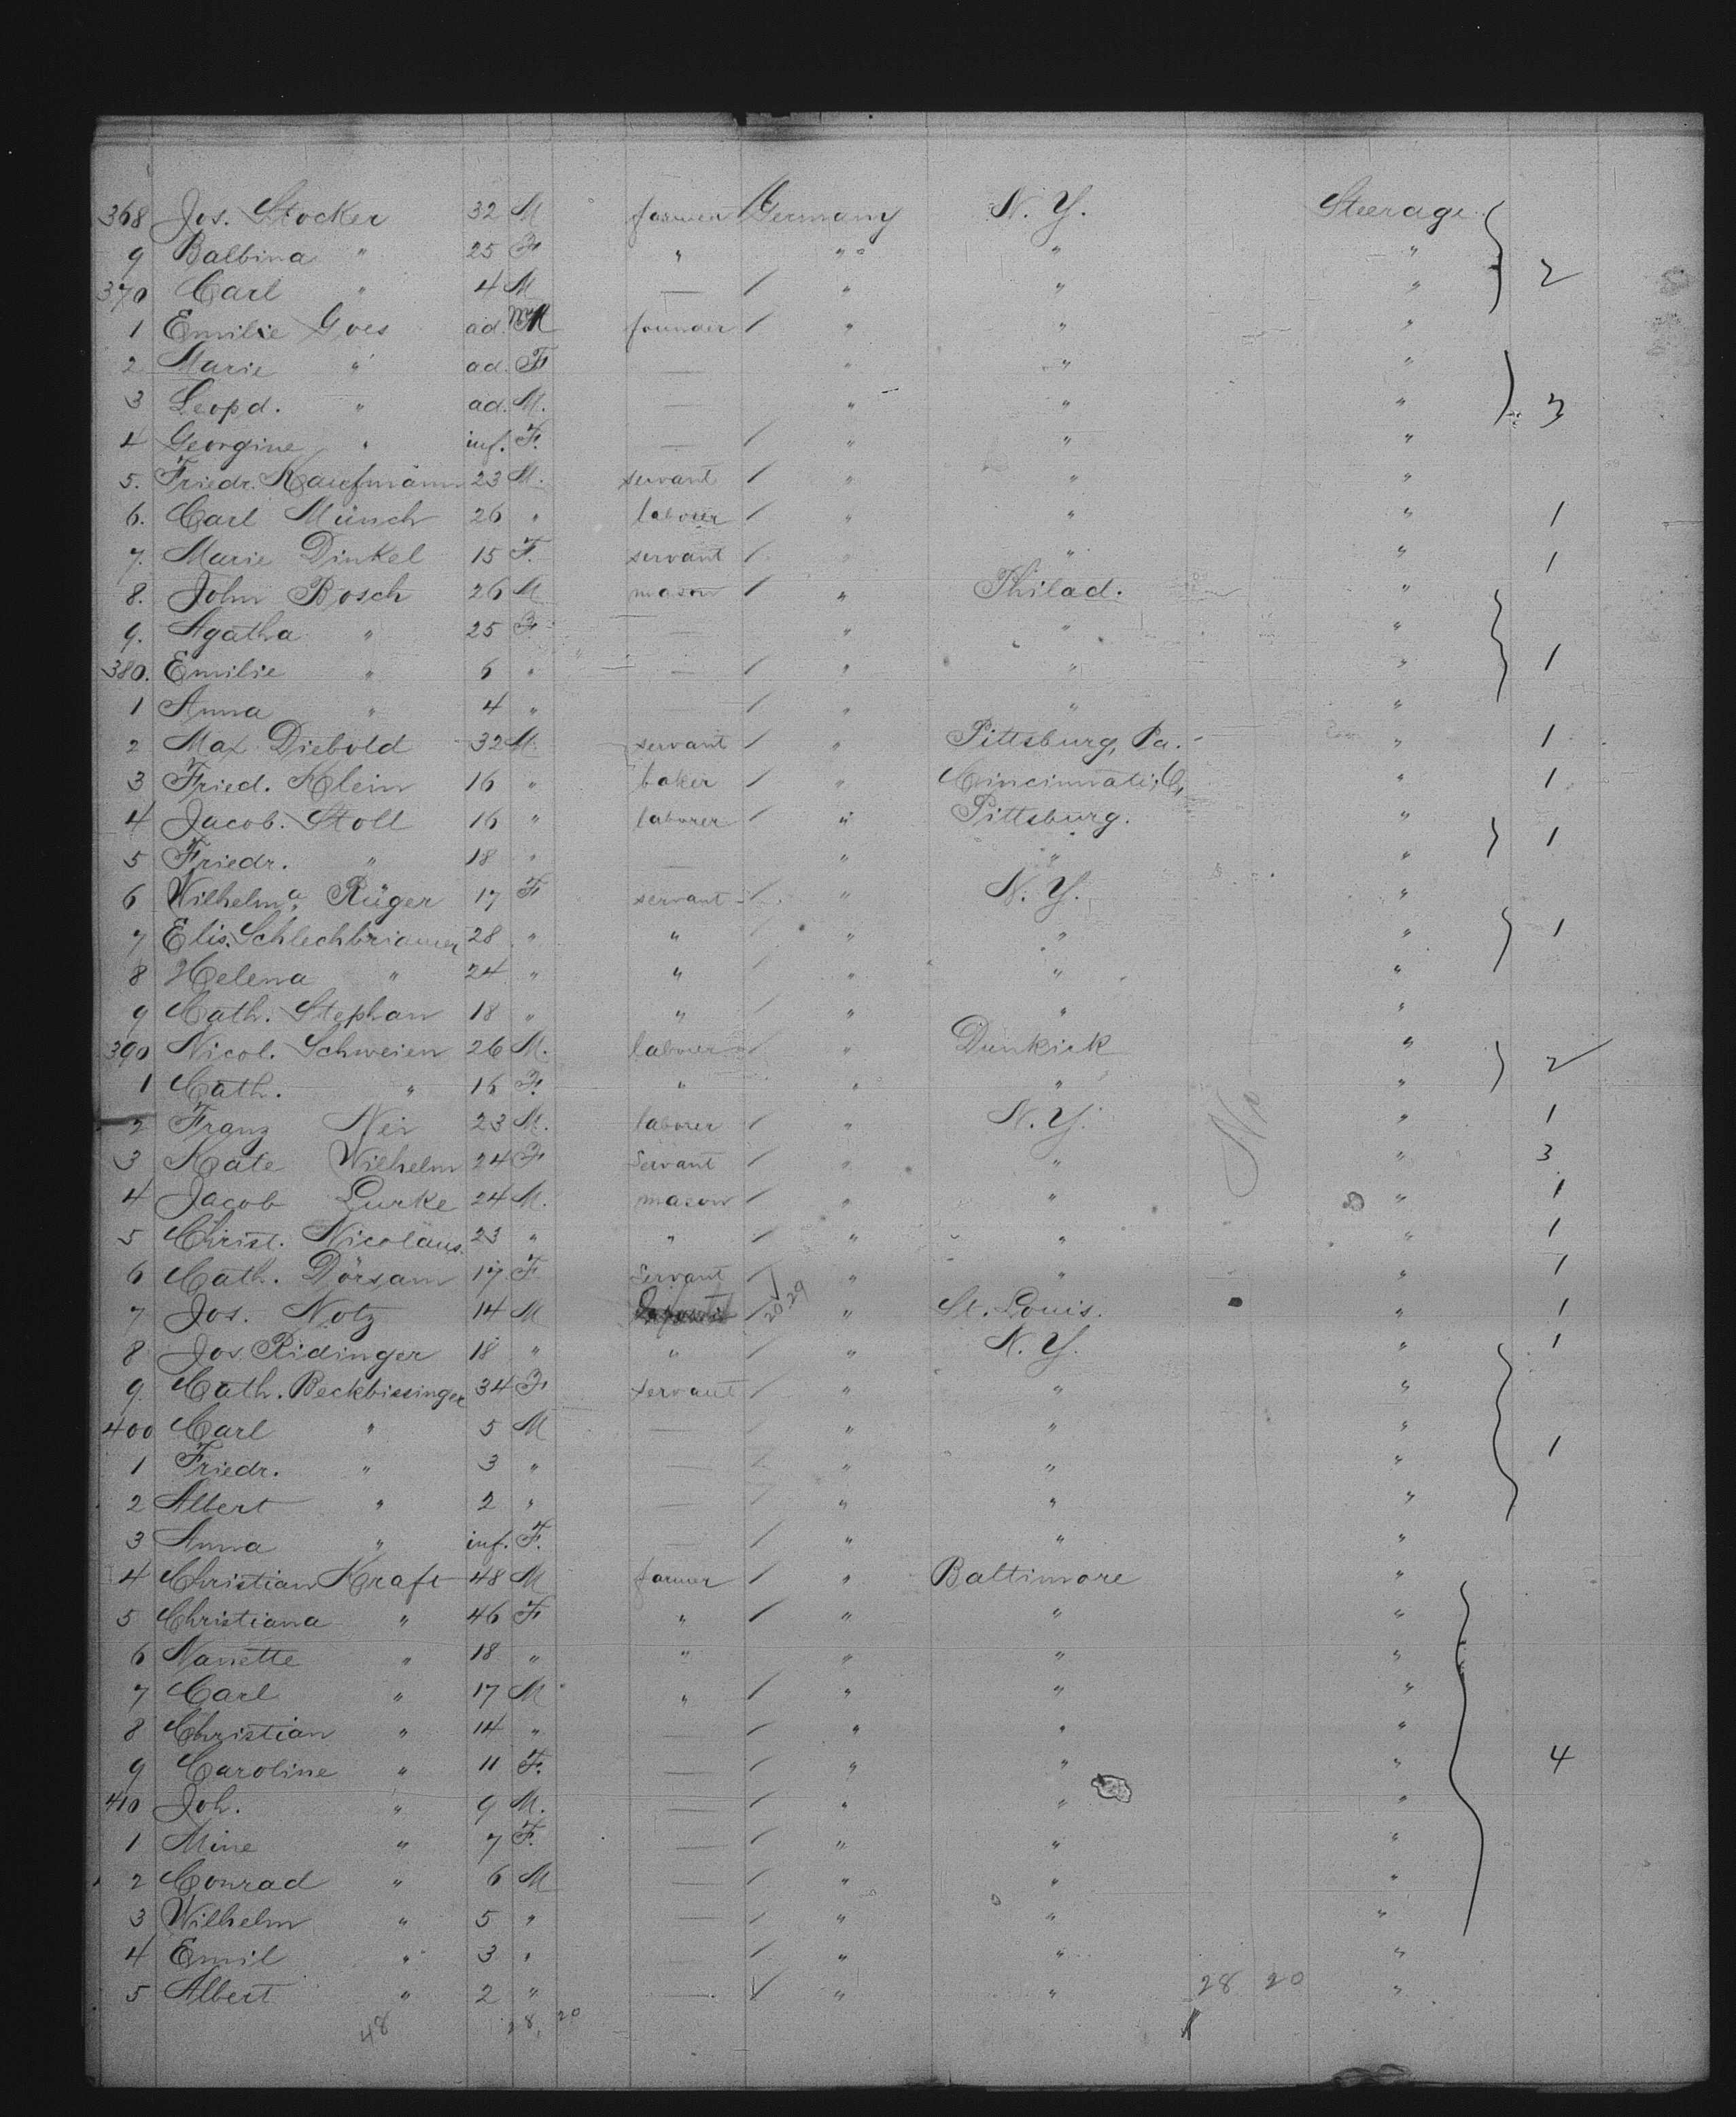 368 Jos. Stocker 32 M farmer Germany N. Y. Steerage
9 Balbina " 25 F " " " "
370 Carl " 4 M — / " " " 2
1 Emilie Goes ad. M founder / " " "
2 Marie " ad. F — " " "
3 Leopd. " ad. M. — " " " 3
4 Georgine " inf. F. — / " " "
5. Friedr. Kaufmann 23 M. servant / " " "
6. Carl Münch 26 " laborer / " " " 1
7. Marie Dinkel 15 F. servant / " " " 1
8. John Bosch 26 M mason / " Philad. "
9. Agatha " 25 F — " " "
380. Emilie " 6 " — / " " " 1
1 Anna " 4 " / " " "
2 Max Diebold 32 M. servant / " Pittsburg, Pa. " 1
3 Fried. Klein 16 " baker / " Cincinnati, O, " 1
4 Jacob. Stoll 16 " laborer / " Pittsburg. "
5 Friedr. " 18 " — " " " 1
6 Wilhelma. Rüger 17 F servant / " N. Y. "
7 Elis. 28 " " / " " " 1
8 Helena " 24 " " / " " "
9 Cath. Stephan 18 " " / " " "
390 Nicol. Schweien 26 M. laborer / " Dunkirk "
1 Cath. " 16 F. " " " " 2
2 Franz 23 M. laborer / " N. Y. " 1
3 Kate Wilhelm 24 F servant / " " " 3
4 Jacob Lurke 24 M. mason / " " " 1
5 Christ. Nicolaus. 23 " " / " " " 1
6 Cath. Dörsam 17 F Servant / " " " 1
7 Jos. Notz 14 M / 20 29 " St. Louis. " 1
8 Jos Ridinger 18 " " / " N. Y. " 1
9. Cath. Beckbissinger 34 F servant / " " "
400 Carl " 5 M — " " "
1 Friedr. " 3 " — / " " " 1
2 Albert " 2 " — / " " "
3 Anna " inf. F. — / " " "
4 Christian Kraft 48 M farmer / " Baltimore "
5 Christiana " 46 F " / " " "
6 Nanette " 18 " " " " "
7 Carl " 17 M " / " " "
8 Christian " 14 " — / " " "
9 Caroline " 11 F. — / " " " 4
410 Joh. " 9 M. — / " " "
1 Mine " 7 F. — / " " "
2 Conrad " 6 M — / " " "
3 Wilhelm " 5 " — / " " "
4 Emil " 3 " — / " " "
5 Albert " 2 " — / " " 28 20 "
48 28, 20